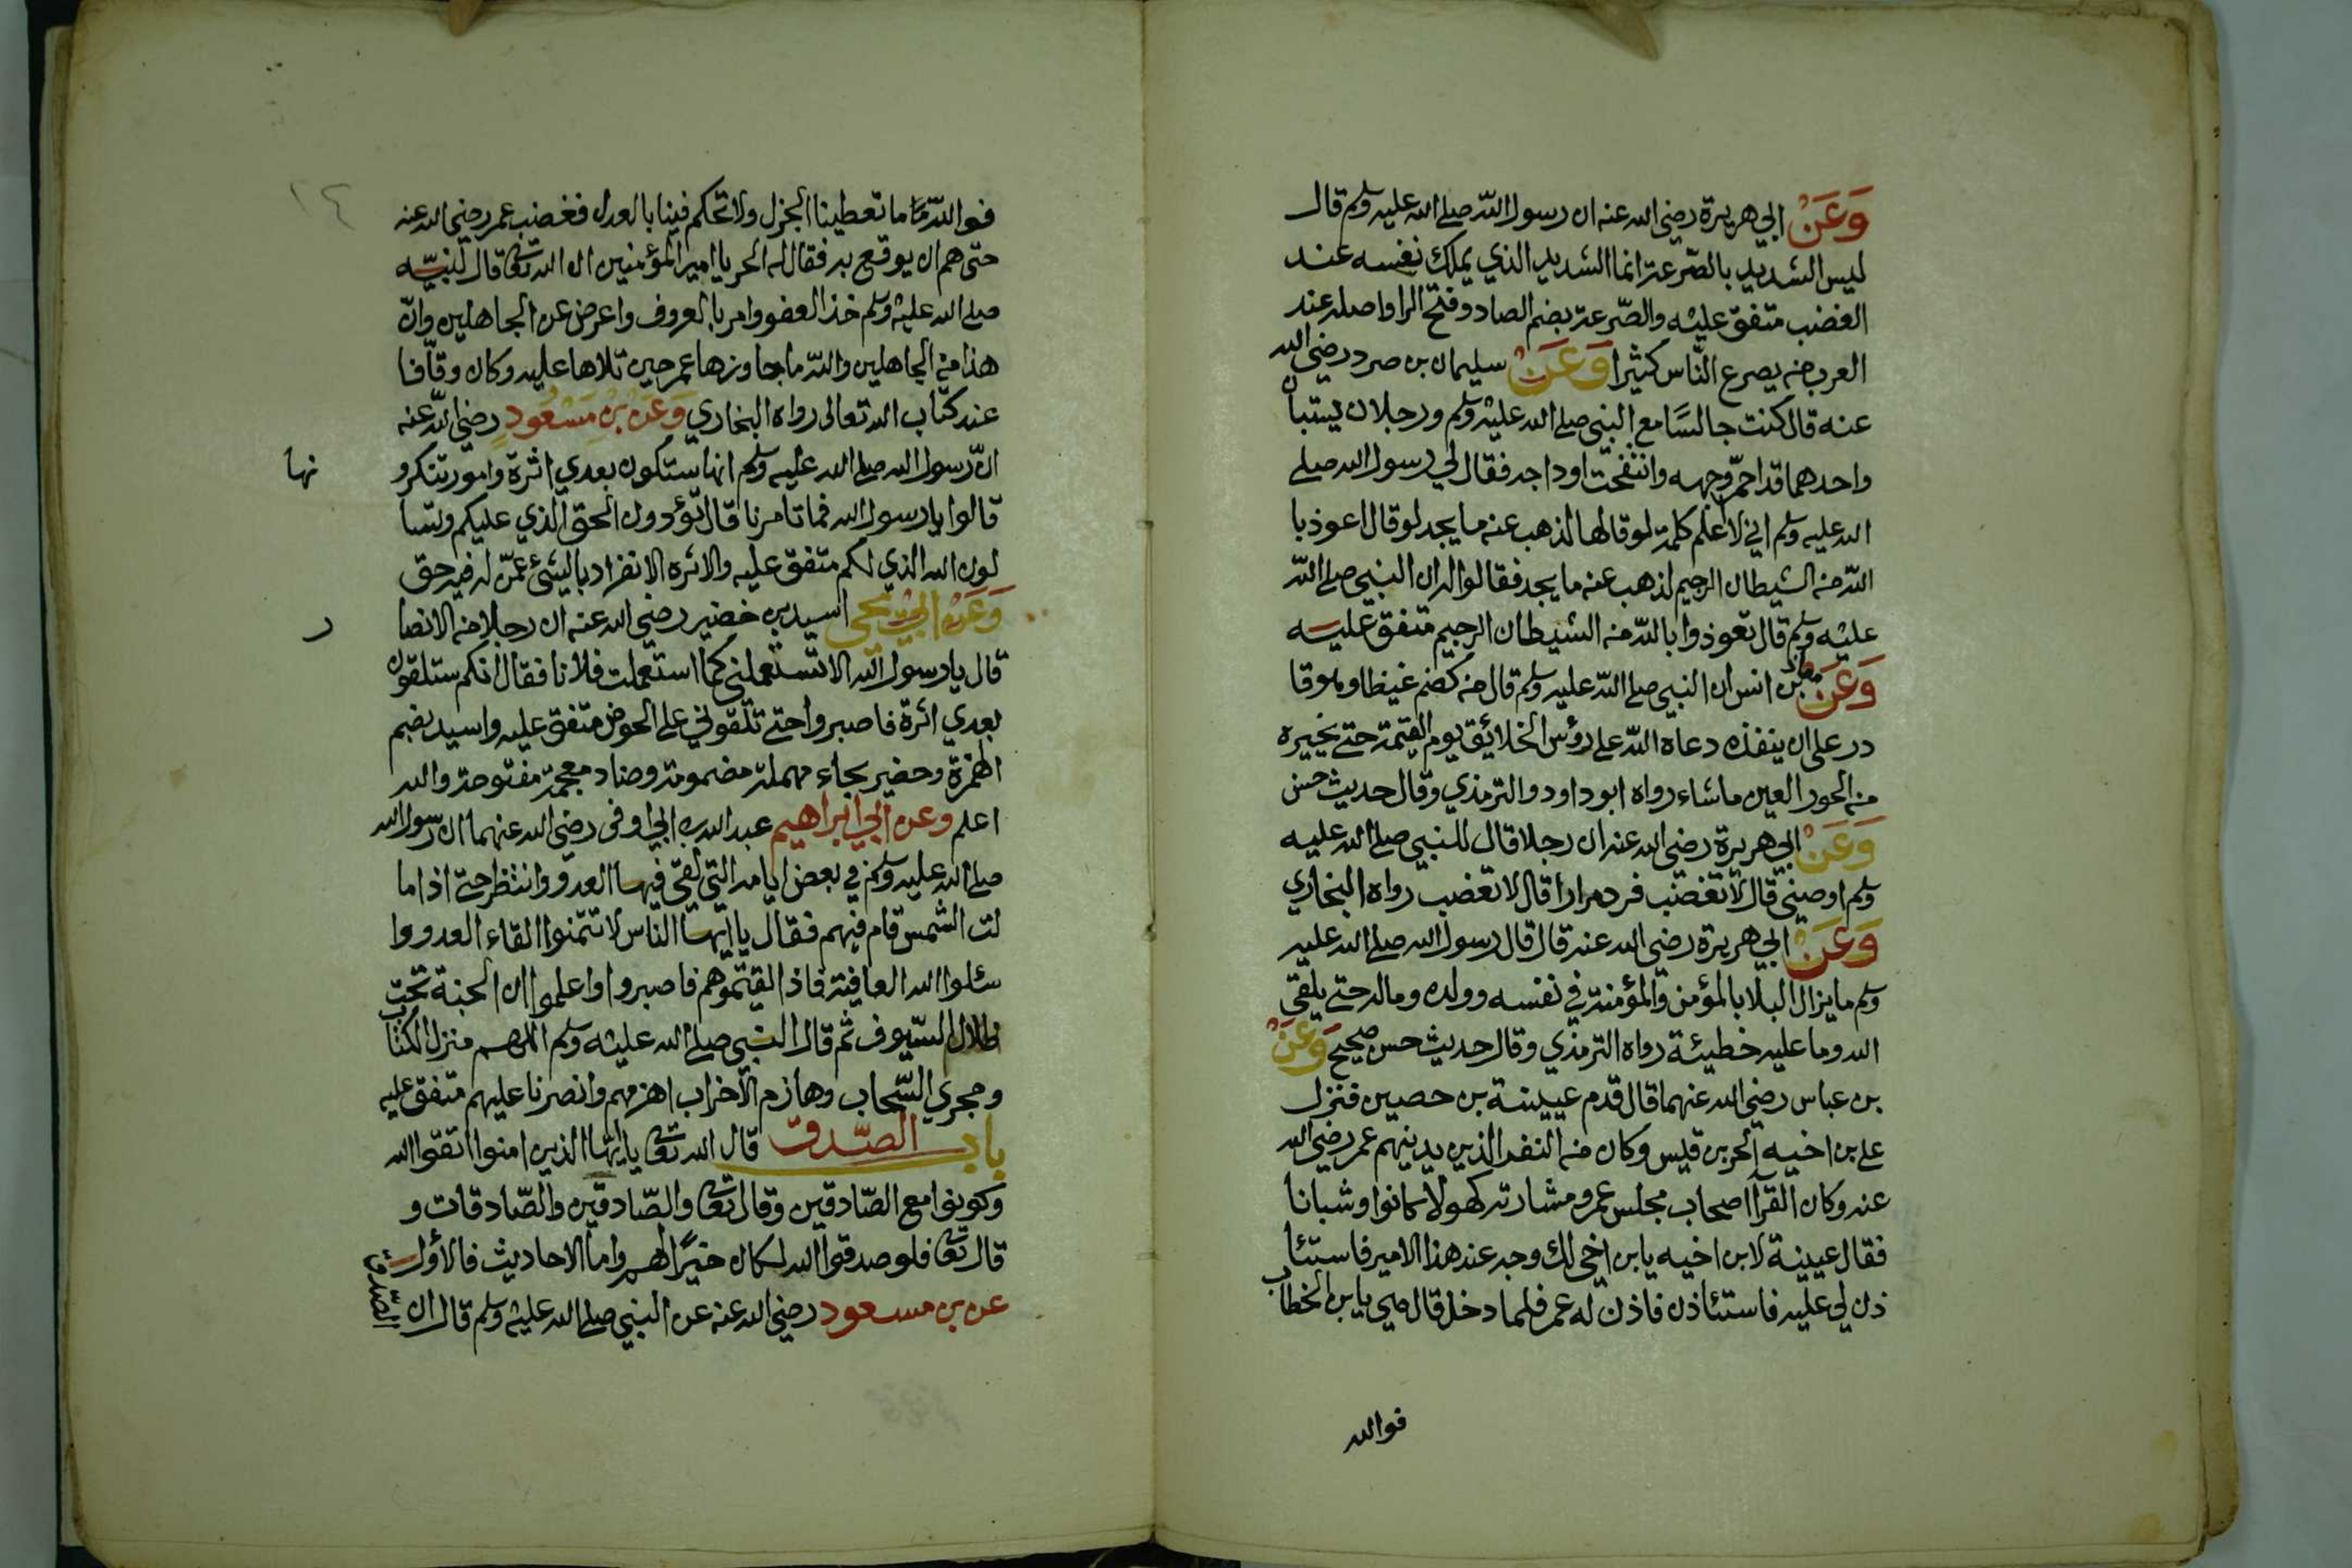 وَعَنْ ابي هريرة رضي الله عنه ان رسول الله صلى الله عليه وسلم قال
ليس الشديد بالصّرعة انما الشديد الذي يملك نفسه عند
الغضب متفق عليه والصّرعة بضم الصاد وفتح الرا واصله عند
العرب من يصرع النّاس كثيرا وَعَنْ سليمان بن صرد رضي الله
عنه قال كنت جالسًا مع النبي صلى الله عليه وسلم ورجلان يستبان
واحدهما قد احمّر وجهه وانتفخت اوداجه فقال لي رسول الله صلى
الله عليه وسلم اني لاعلم كلمة لو قالها لذهب عنه ما يجد لو قال اعوذ با
الله من الشيطان الرجيم لذهب عنه ما يجد فقالوا له ان النبي صلى الله
عليه وسلم قال تعوذوا بالله من الشيطان الرجيم متفق عليه
وَعَنْ معاذ بن انس ان النبي صلى الله عليه وسلم قال من كضم غيظا وهو قا
در على ان ينفذه دعاه الله على رؤس الخلائق يوم القيمة حتى يخيره
من الحور العين ما شاء رواه ابو داود والترمذي وقال حديث حسن
وَعَنْ ابي هريرة رضي الله عنه ان رجلا قال للنبي صلى الله عليه
وسلم اوصني قال لا تغضب فردد مرارا قال لا تغضب رواه البخاري
وَعَنْ ابي هريرة رضي الله عنه قال قال رسول الله صلى الله عليه
وسلم ما يزال البلا بالمؤمن والمؤمنة في نفسه وولده وماله حتى يلقى
الله وما عليه خطيئة رواه الترمذي وقال حديث حسن صحيح وَعَنْ
بن عباس رضي الله عنهما قال قدم عيينة بن حصين فنزل
على بن اخيه الحر بن قيس وكان من النفر الذين يدنيهم عمر رضي الله
عنه وكان القرآ اصحاب مجلس عمر ومشارته كهولا كانوا وشبانا
فقال عيينة لابن اخيه يابن اخي لك وجه عند هذا الامير فاستئا
ذن لي عليه فاستئاذن فاذن له عمر فلما دخل قال هي يابن الخطاب
فوالله
١٤
فوالله ما تعطينا الجزل ولا تحكم فينا بالعدل فغضب عمر رضي الله عنه
حتى هم ان يوقع به فقال له الحر يا امير المؤمنين ان الله تعا قال لنبيّه
صلى الله عليه وسلم خذ العفو وامر بالعروف واعرض عن الجاهلين وانّ
هذا من الجاهلين والله ما جاوزها عمر حين تلاها عليه وكان وقّافا
عند كتاب الله تعالى رواه البخاري وَعَنْ بْنِ مَسْعُودٍ رضي الله عنه
انّ رسول الله صلى الله عليه وسلم انها ستكون بعدي اثرة وامور تنكرو
نها
قالوا يا رسول الله فما تامرنا قال تؤدون الحق الذي عليكم وتسا
لون الله الذي لكم متفق عليه والاثره الانفراد بالشئ عمّن له فيه حق
وَعَنْ ابي يحيى اسيد بن خضير رضي الله عنه ان رجلا من الانصا
ر
قال يا رسول الله الا تستعملني كما استعملت فلانا فقال انكم ستلقون
بعدي اثرة فاصبروا حتى تلقوني على الحوض متفق عليه واسيد بضم
الهمزة وحضير بحاء مهملة مضمومة وضاد معجمة مفتوحة والله
اعلم وعن ابي ابراهيم عبد الله بن ابي اوفى رضي الله عنهما ان رسول الله
صلى الله عليه وسلم في بعض ايامه التي لقي فيها العدو وانتظر حتى اذا ما
لت الشمس قام فيهم فقال يا ايها الناس لا تتمنوا لقاء العدو وا
سئلوا الله العافية فاذا لقيتموهم فاصبروا واعلموا ان الجنة تحت
ظلال السّيوف ثم قال النبي صلى الله عليه وسلم اللهم منزل الكتاب
ومجري السّحاب وهازم الاحزاب اهزمهم وانصرنا عليهم متفق عليه
باب الصّدق قال الله تعا يا ايّها الذين امنوا اتقوا الله
وكونوا مع الصّادقين وقال تعا والصّادقين والصّادقات و
قال تعا فلو صدقوا الله لكان خيرًا لهم واما الاحاديث فالأول
عن بن مسعود رضي الله عنه عن النبي صلى الله عليه وسلم قال ان
الصدق